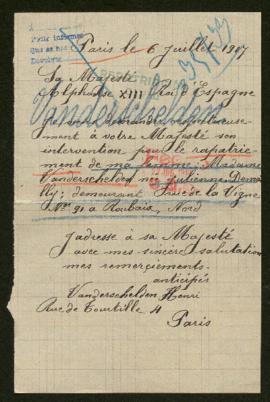 Paris le 6 juillet 1917
Sa Majesté
Alphonse XIII Roi d'Espagne
Vanderschelden
Je viens demander respectueuse-
ment à votre Majesté son
intervention pour le rapatrie-
ment de ma femme, Madame
Vanderschelden née Julienne
demeurant rue de la Vigne
Nº 91 a Roubaix, Nord
J'adresse à sa Majesté
avec mes sincère salutations
mes remerciements
anticipés
Vanderschelden Henri
Rue de Tourtille 4
Paris